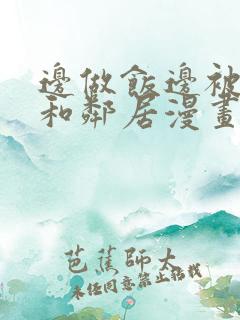 邊做飯邊被
和鄰居漫畫
芭蕉師太
未經同意禁止搭載